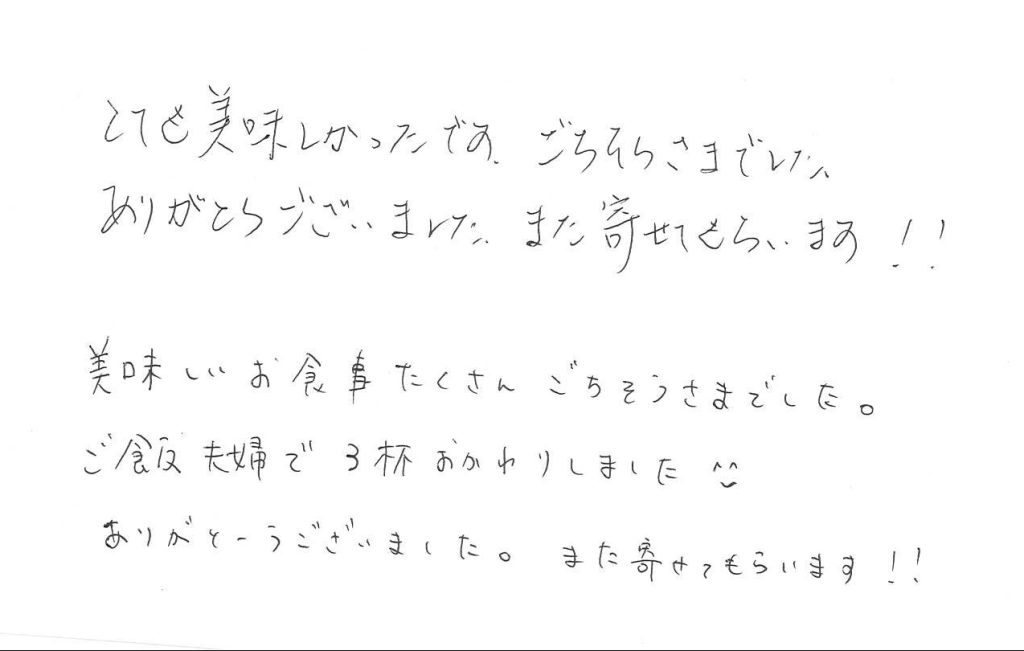 とても美味しかったです、ごちそうさまでした、
ありがとうございました、また寄せてもらいます!!
美味しいお食事たくさんごちそうさまでした。
ご飯夫婦で3杯おかわりしました^^
ありがとーうございました。また寄せてもらいます!!